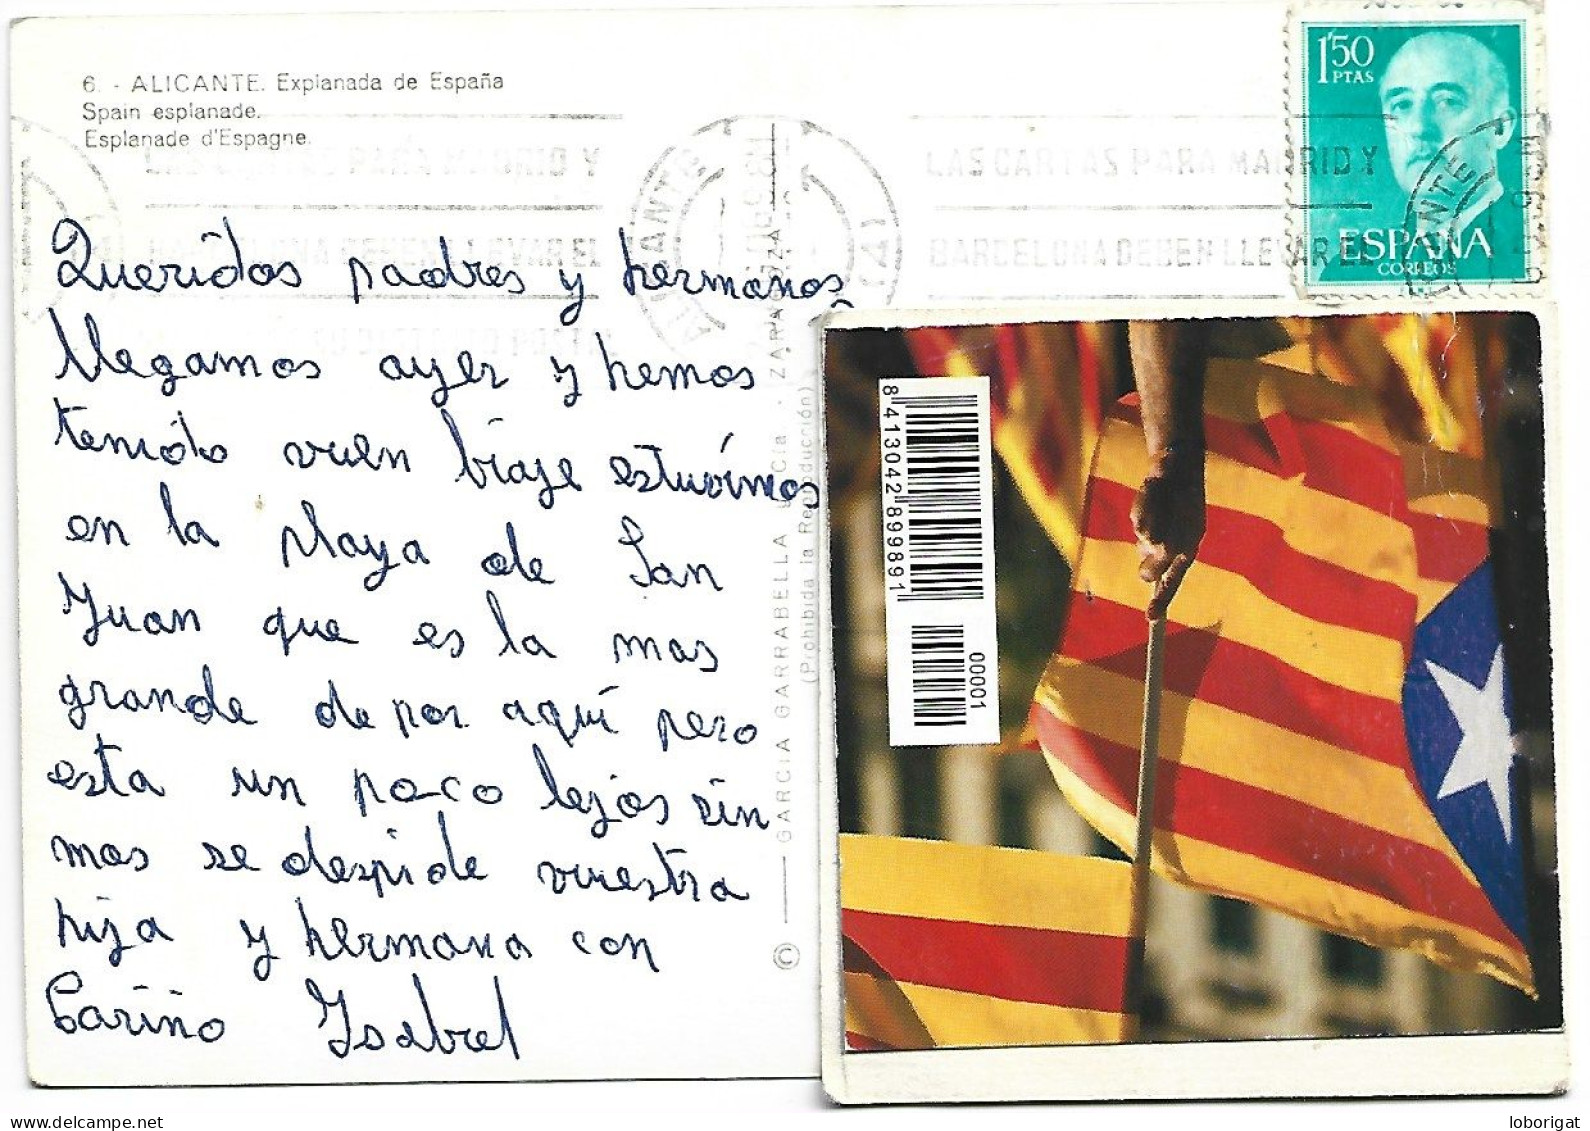 6. - ALICANTE. Explanada de España
Spain esplanade.
Esplanade d'Espagne.
1'50
PTAS
ESPAÑA
CORREOS
LAS CARTAS PARA MADRID Y
BARCELONA DEBEN LLEVAR EL
SU DISTRITO POSTAL
ALICANTE
LAS CARTAS PARA MADRID Y
BARCELONA DEBEN LLEVAR EL
Queridos padres y hermanos
llegamos ayer y hemos
tenido vuen biaje estuvimos
en la playa de San
Juan que es la mas
grande de por aquí pero
esta un poco lejos sin
mas se despide vuestra
hija y hermana con
Cariño Ysabel
© GARCIA GARRABELLA y Cia. - ZARAGOZA
(Prohibida la Reproducción)
8 413042 899891
00001
loborigat